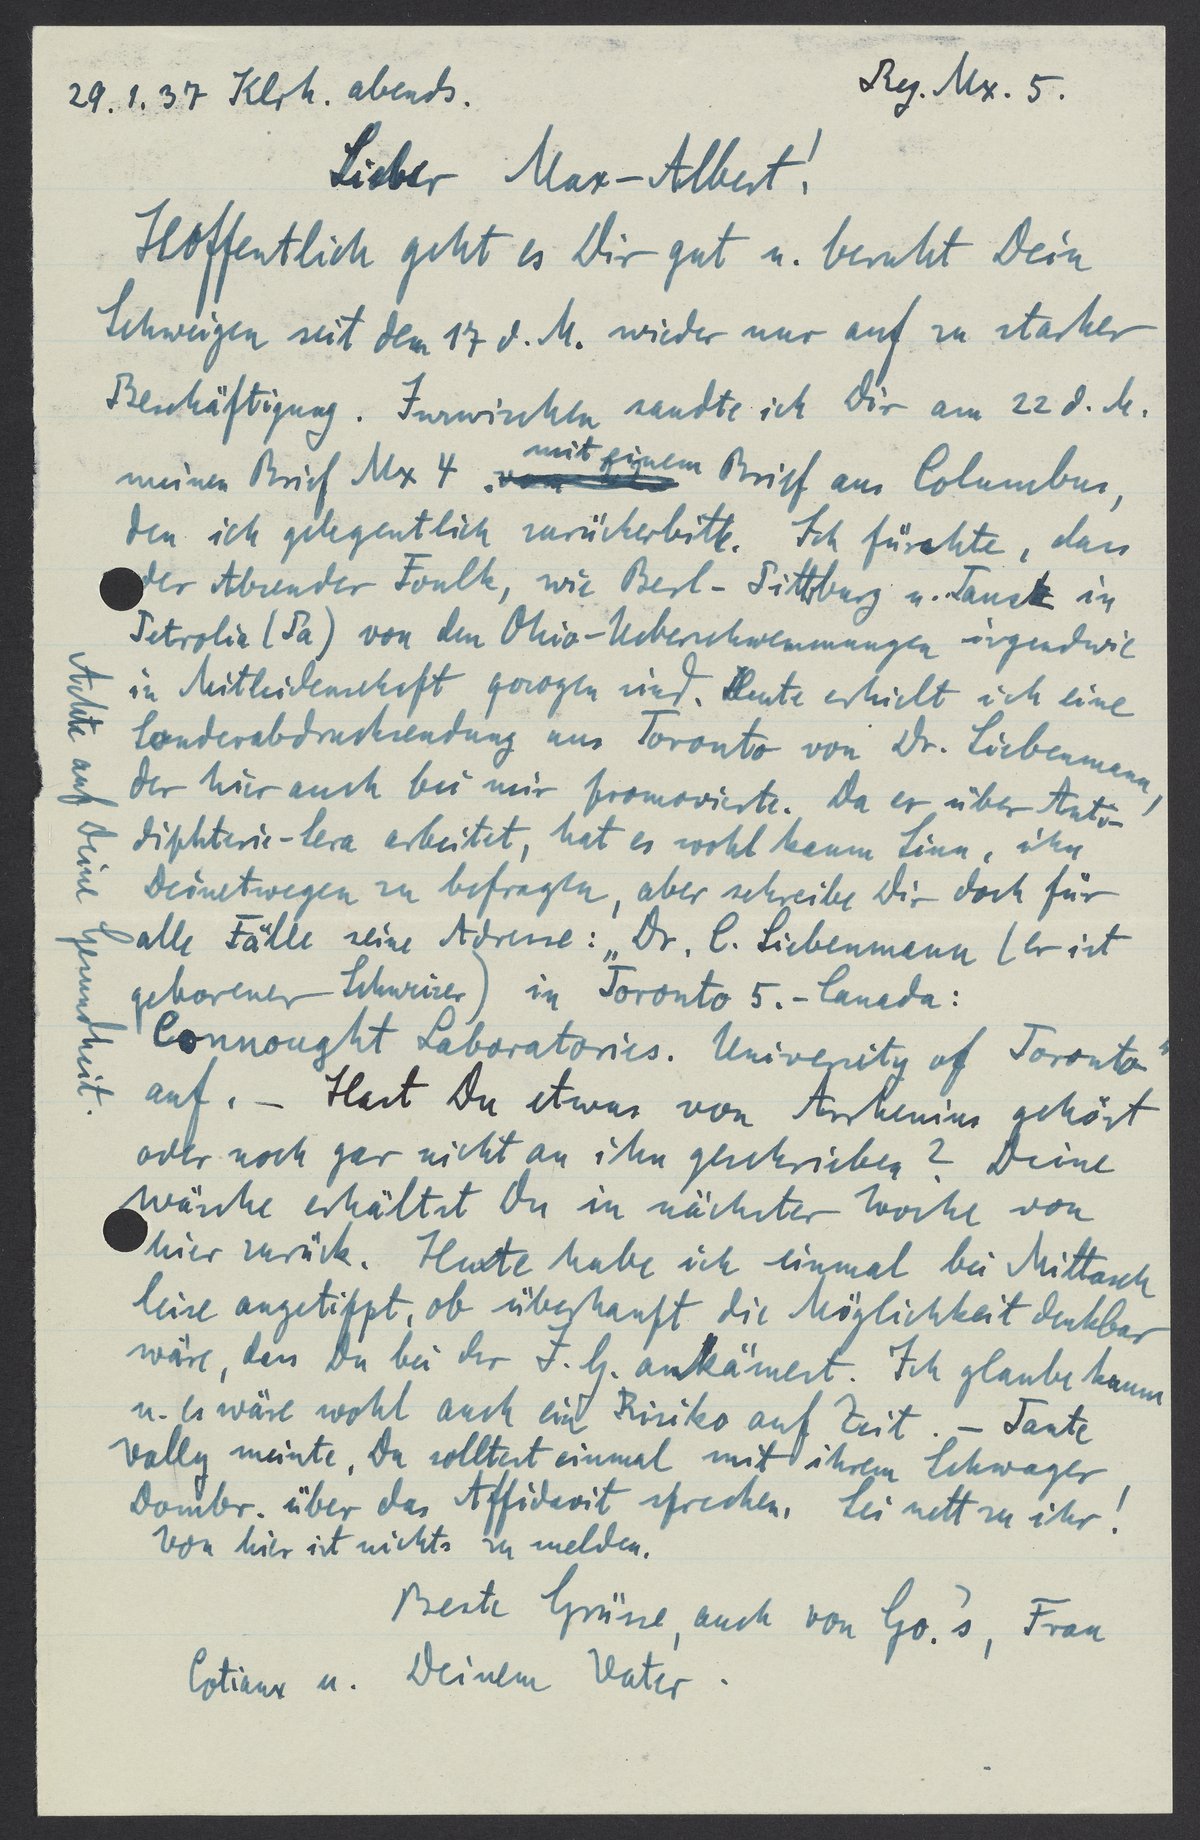 29.1.37 Klrh. abends.
Reg. Mx. 5.
Lieber Max-Albert!
Hoffentlich geht es Dir gut u. beruht Dein
Schweigen seit dem 17 d. M. wieder nur auf zu starker
Beschäftigung. Inzwischen sandte ich Dir am 22 d. M.
meinen Brief Mx 4 mit einem Brief aus Columbus,
den ich gelegentlich zurückerbitte. Ich fürchte, dass
der Absender Foulk, wie Berl-Pittsburg u. Tausk in
Petrolia (Pa) von den Ohio-Ueberschwemmungen irgendwie
in Mitleidenschaft gezogen sind. Heute erhielt ich eine
Sonderabdrucksendung aus Toronto von Dr. Siebenmann,
der hier auch bei mir promovierte. Da er über Anti-
diphterie-Sera arbeitet, hat es wohl kaum Sinn, ihn
Deinetwegen zu befragen, aber schreibe Dir doch für
alle Fälle seine Adresse: „Dr. C. Siebenmann (er ist
geborener Schweizer) in Toronto 5.-Canada:
Connought Laboratories. University of Toronto"
auf. – Hast Du etwas von Arrhenius gehört
oder noch gar nicht an ihn geschrieben? Deine
Wäsche erhältst Du in nächster Woche von
hier zurück. Heute habe ich einmal bei Mittasch
leise angetippt, ob überhaupt die Möglichkeit denkbar
wäre, dass Du bei der I. G. ankämest. Ich glaube kaum
u. es wäre wohl auch ein Risiko auf Zeit. – Tante
Vally meinte, Du solltest einmal mit ihrem Schwager
Dombr. über das Affidavit sprechen. Sei nett zu ihr!
Von hier ist nichts zu melden.
Beste Grüsse, auch von Go.'s, Frau
Cotiaux u. Deinem Vater.
Achte auf Deine Gesundheit.